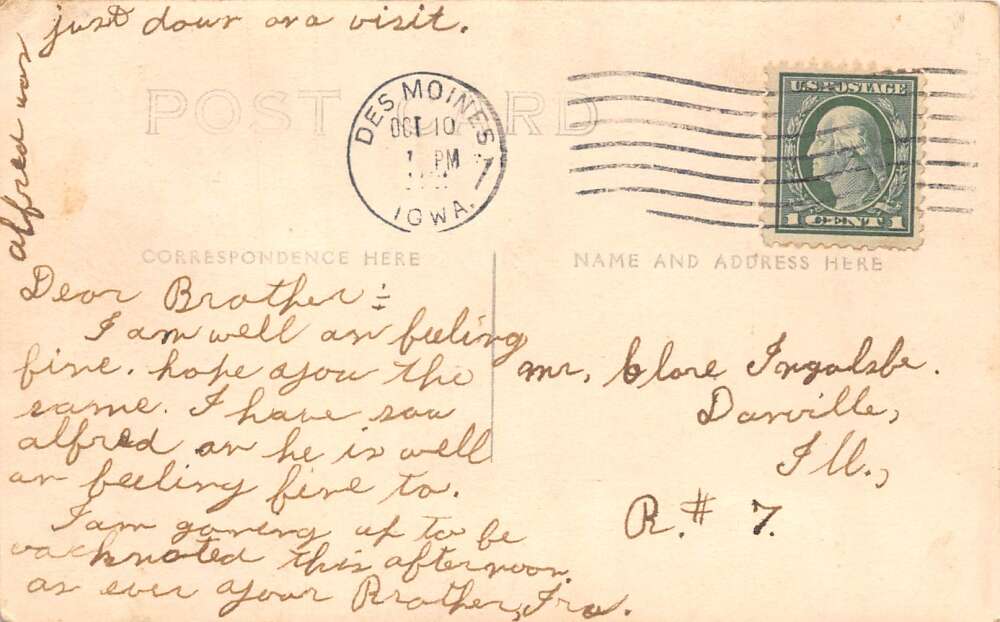 just dour on a visit.
alfred was
POST CARD
DES MOINES
OCT 10
1 PM
IOWA.
U.S. POSTAGE
1 CENT 1
CORRESPONDENCE HERE
NAME AND ADDRESS HERE
Dear Brother :
I am well an feeling
fine. hope you the
same. I have saw
alfred an he is well
an feeling fine to.
I am goning up to be
vachnoted this afternoon.
as ever your Brother, Ira.
mr, Clore Ingalsbe.
Danville,
Ill.,
R. # 7.